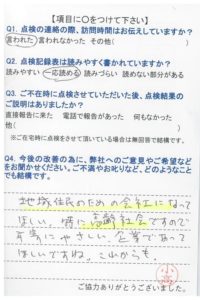 【項目に○をつけて下さい】
Q1. 点検の連絡の際、訪問時間はお伝えしていますか?
言われた 言われなかった その他( )
Q2. 点検記録表は読みやすく書かれていますか?
読みやすい 一応読める 読みづらい 読めない部分がある
Q3. ご不在時に点検させていただいた後、点検結果の
ご説明はありましたか?
直接報告に来た 電話で報告があった 何もなかった
他( )
※ご在宅時に点検をさせて頂いている場合は無回答で結構です。
Q4. 今後の改善の為に、弊社へのご意見やご希望など
をお聞かせください。ご不満やお叱りなど、どのようなこと
でも結構です。
地域住民のための会社になって
ほしい。特に高齢社会ですので
老人にやさしい企業であって
ほしいですね。これからも
ご協力ありがとうございました。